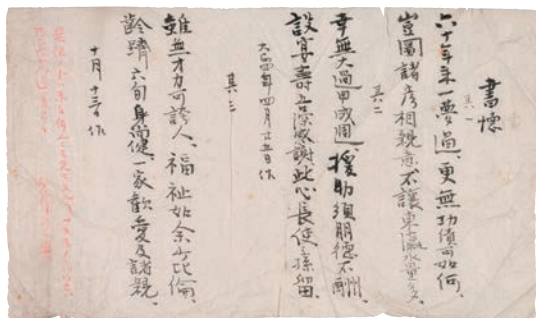 書懷
其一
六十年来一夢過、更無功績可如何、
豈圖諸彦相親意、不讓東瀛水量多、
其二
幸無大過甲成週、援助須朋德不酬、
設宴壽言深感謝、此心長使子孫留、
大正四年四月廿五日作
其三
雖無才力可誇人、福祉如余少比倫、
齡躋六旬身尚健、一家歡愛及諸親、
十月十三日作